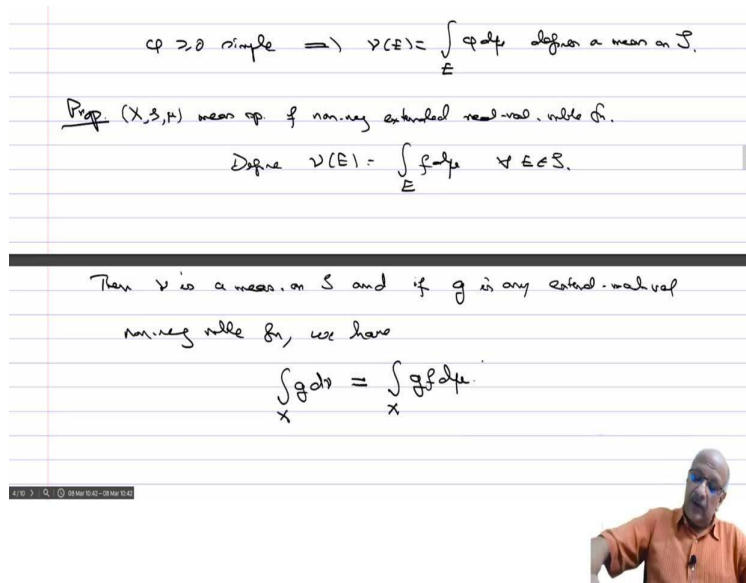 φ ≥0 simple ⇒ ν(E) = ∫_E φ dμ defines a meas on S.
Prop. (X, S, μ) meas sp. f non-neg extended real-val. mble fn.
Define ν(E) = ∫_E f dμ ∀ E ∈ S.
Then ν is a meas. on S and if g is any extend-real val
non-neg mble fn, we have
∫_X g dν = ∫_X g f dμ.
4/10 08 Mar 10:42 - 08 Mar 10:42